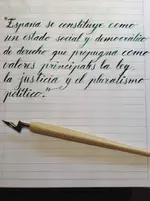 "España se constituye como
un estado social y democrático
de derecho que propugna como
valores principales la ley,
la justicia y el pluralismo
político."